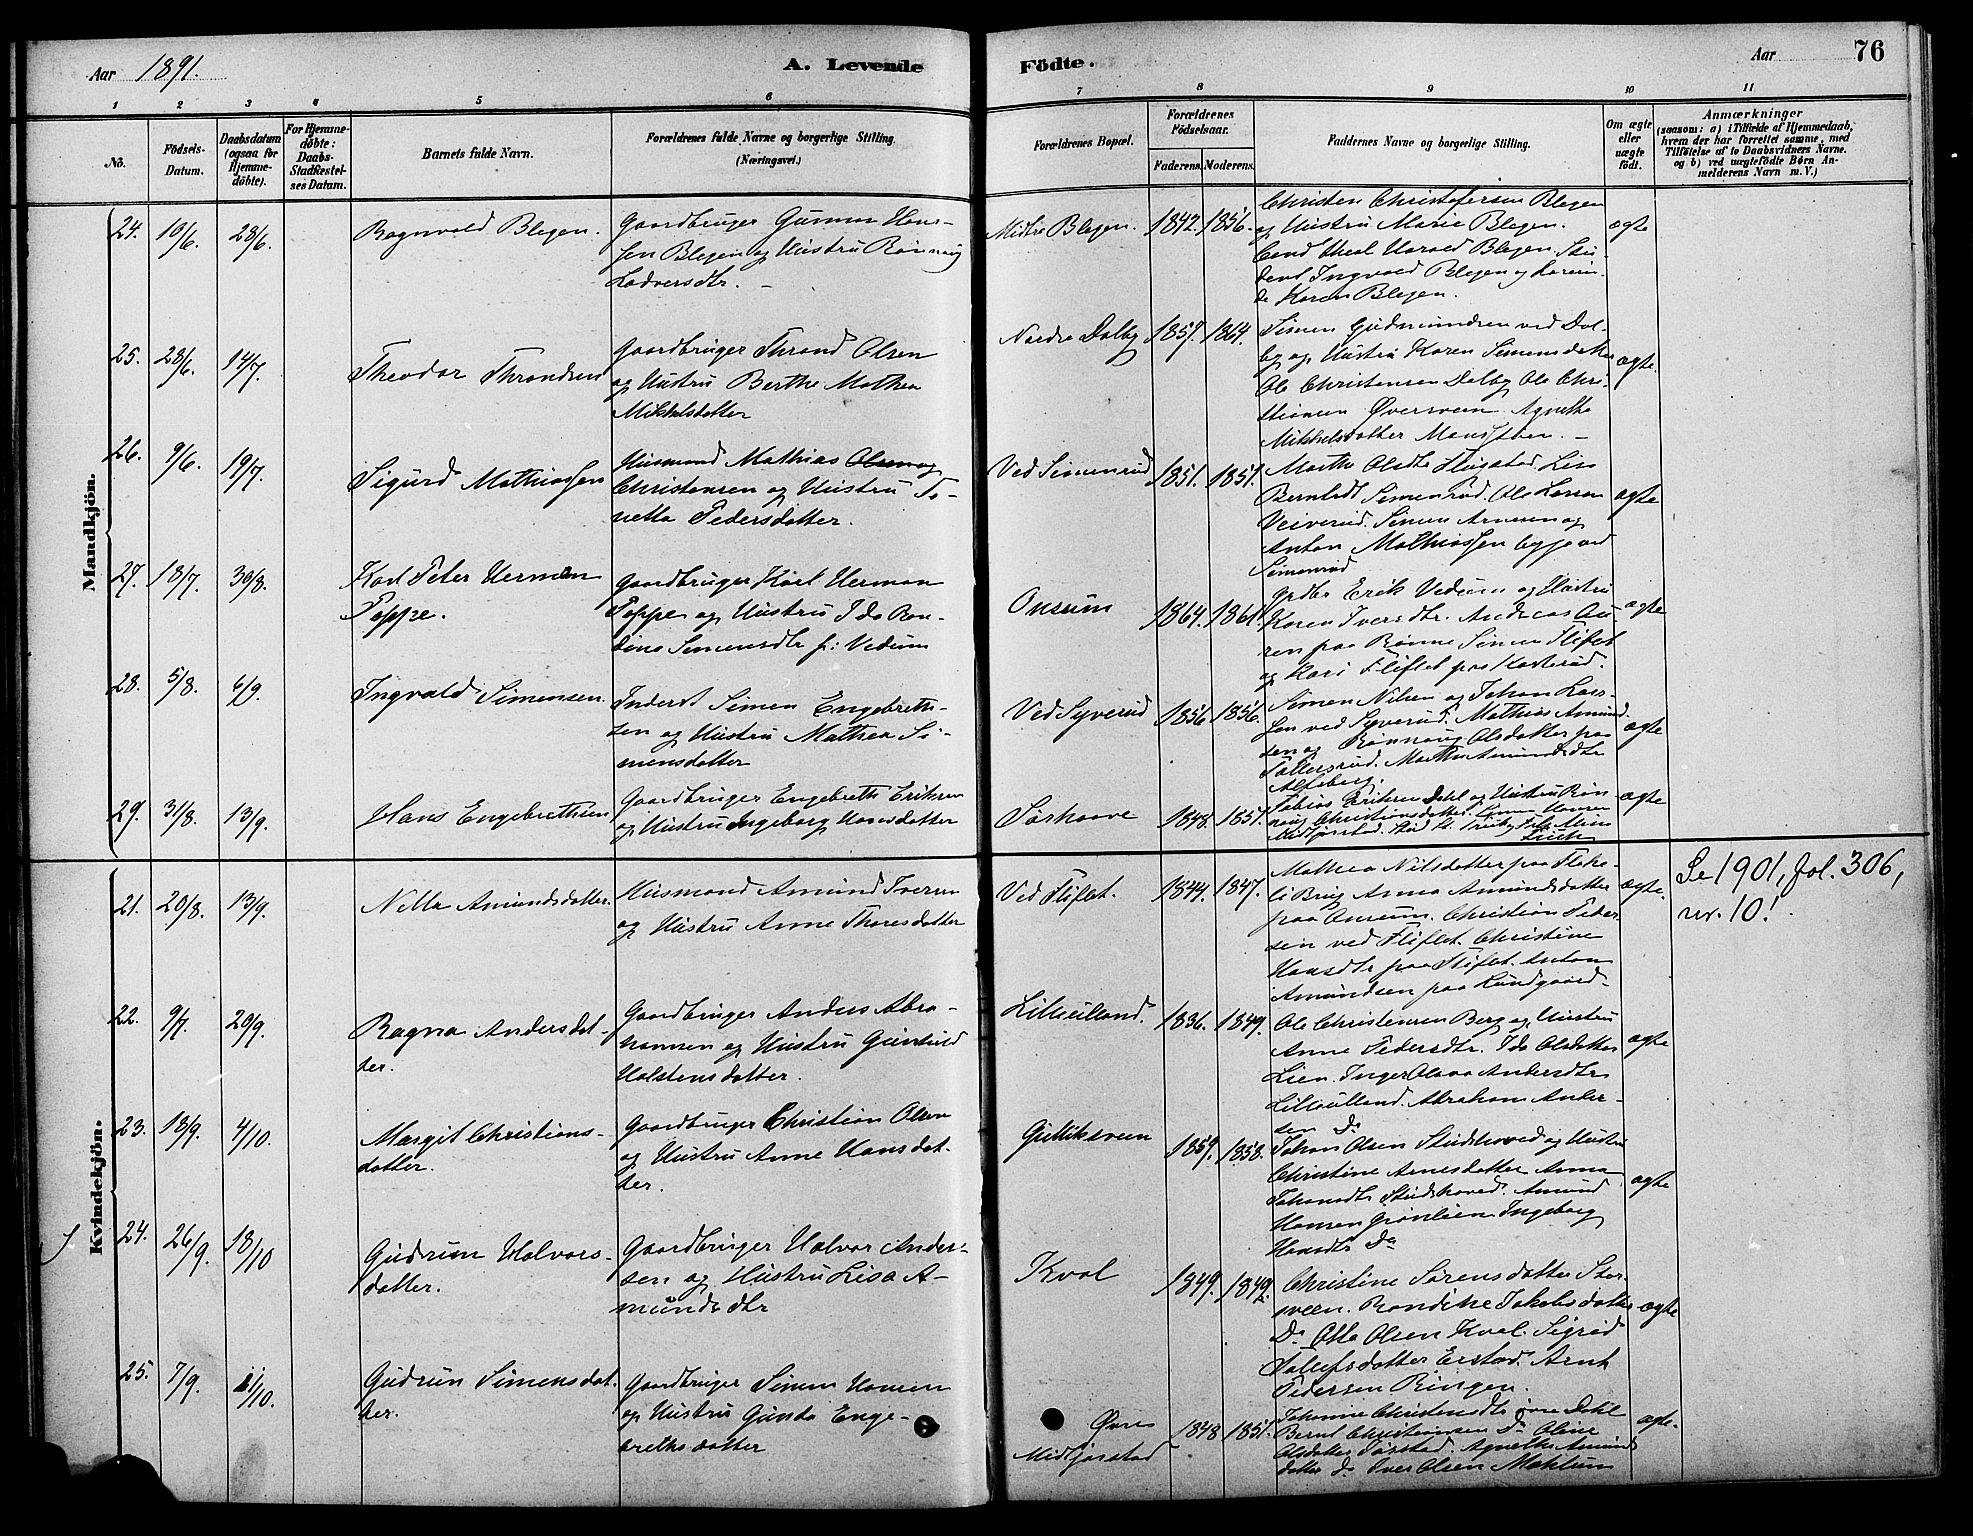 Aar 1891.
A. Levende
Födte.
Aar
76
1 2 3 4 5 6 7 8 9 10 11
No.
Födsels-
Datum.
Daabsdatum
(ogsaa for
Hjemme-
döbte).
For Hjemme-
döbte:
Daabs-
Stadfæstel-
ses Datum.
Barnets fulde Navn.
Forældrenes fulde Navne og borgerlige Stilling.
(Næringsvei.)
Forældrenes Bopæl.
Forældrenes
Födselsaar.
Faderens. Moderens.
Faddernes Navne og borgerlige Stilling.
Om ægte
eller
uægte
födt.
Anmærkninger
(saasom: a) i Tilfælde af Hjemmedaab,
hvem der har forrettet samme, med
Tilföielse af to Daabsvidners Navne.
og b) ved uægtefödte Börn An-
melderens Navn m. V.)
Mandkjön.
24. 10/6. 28/6. Ragnvald Blegen.
Gaardbruger Gunnar Han-
sen Blegen og Hustru Rønnaug
Lodversdtr.
Midtre Blegen. 1842. 1856.
Christen Christofersen Blegen
og Hustru Marie Blegen.
Cand. theol Harald Blegen. Stu-
dent Ingvald Blegen og
Karen Blegen.
ægte
25. 28/6. 14/7. Theodor Throndsen
Gaardbruger Thrond Olsen
og Hustru Berthe Mathea
Mikkelsdatter
Nordre Dalby 1857. 1864.
Simen Gudmundsen ved Dal-
by og Hustru Karen Simensdatter
Ole Christensen Dalby Ole Chri-
stiansen Øversveen Agnethe
Mikkelsdatter
ægte.
26. 9/6. 19/7. Sigurd Mathiassen
Husmand Mathias Olsen og
Christensen og Hustru To-
netta Pedersdatter.
Ved Simenrud 1851. 1851.
Marthe Olsdtr Flugstad Lise
Berntsdt Simenrud. Ole Larsen
Veiverud. Simen Arnesen og
Anton Mathiassen begge ved
Simenrud
ægte
27. 18/7. 30/8. Karl Peter Herman
Poppe.
Gaardbruger Karl Herman
Poppe og Hustru Ida Ran-
dine Simensdtr f: Vedum
Onsum 1864. 1861.
Grdbr Erik Vedum og Hustru
Karen Iversdtr. Andreas Au-
ren paa Rønne Simen Fliflet
og Kari Fliflet paa
ægte
28. 5/8. 6/9. Ingvald Simensen.
Inderst Simen Engebreth-
sen og Hustru Mathea Si-
mensdatter
Ved Syverud 1856. 1856.
Simen Nilsen og Johan Lars-
sen ved Syverud. Mathias Amund-
sen og Rønnaug Olsdatter paa
Marthe Amundsdtr
Alfeberg.
ægte
29. 31/8. 13/9. Hans Engebrethsen
Gaardbruger Engebreth Eriksen
og Hustru Ingeborg Hansdatter
1848. 1851.
Tobias Eriksen Dahl og Hustru Røn-
naug Christiansdatter. Simen Hansen
Midtjørstad.
ægte
Kvindekjön.
21. 20/8. 13/9. Nilla Amundsdatter.
Husmand Amund Iversen
og Hustru Anne Thoresdatter
Ved Fliflet. 1844. 1847.
Mathea Nilsdatter paa Flske-
li Brug Anna Amundsdatter
paa Onsum. Christian Peder-
sen ved Fliflet. Christine
Hansdtr paa Fliflet. Anton
Amundsen paa Lundgaard.
ægte.
Se 1901, fol. 306,
nr. 10!
22. 9/7. 20/9. Ragna Andersdat-
ter.
Gaardbruger Anders Abra-
hamsen og Hustru Gunhild
Halstensdatter.
Lilleulland. 1836. 1849.
Ole Christensen Berg og Hustru
Anne Pedersdtr. Ida Olsdatter
Lien. Inger Olava Andersdtr
Lilleulland. Abraham Ander-
sen Do
ægte
23. 18/9. 4/10. Margit Christians-
datter.
Gaardbruger Christian Olsen
og Hustru Anne Hansdat-
ter.
Gulliksveen 1859. 1858.
Johan Olsen Studshoved og Hustru
Christine Arnesdatter Anna
Johansdtr Studshoved. Amund
Hansen Grønlien Ingeborg
Hansdtr Do
ægte
24. 26/9. 18/10 Gudrun Halvors-
datter.
Gaardbruger Halvor Ander-
sen og Hustru Lisa A-
mundsdtr
Kval 1849. 1849.
Christine Sørensdatter Stor-
sveen. Randine Jakobsdatter
Do Otto Olsen Kval. Sigrid
Tollefsdatter Erstad. Arnt
Pedersen Ringen.
ægte
25. 7/9. 11/10. Gudrun Simensdat-
ter.
Gaardbruger Simen Hansen
og Hustru Gunda Enge-
brethsdatter
Øvre
Midtjørstad 1848 1851.
Johanne Christensdtr øvre Dahl
Bernt Christensen Do Oline
Olsdatter Jørstad. Agnethe Amunds
datter do Iver Olsen Mæhlum
ægte.